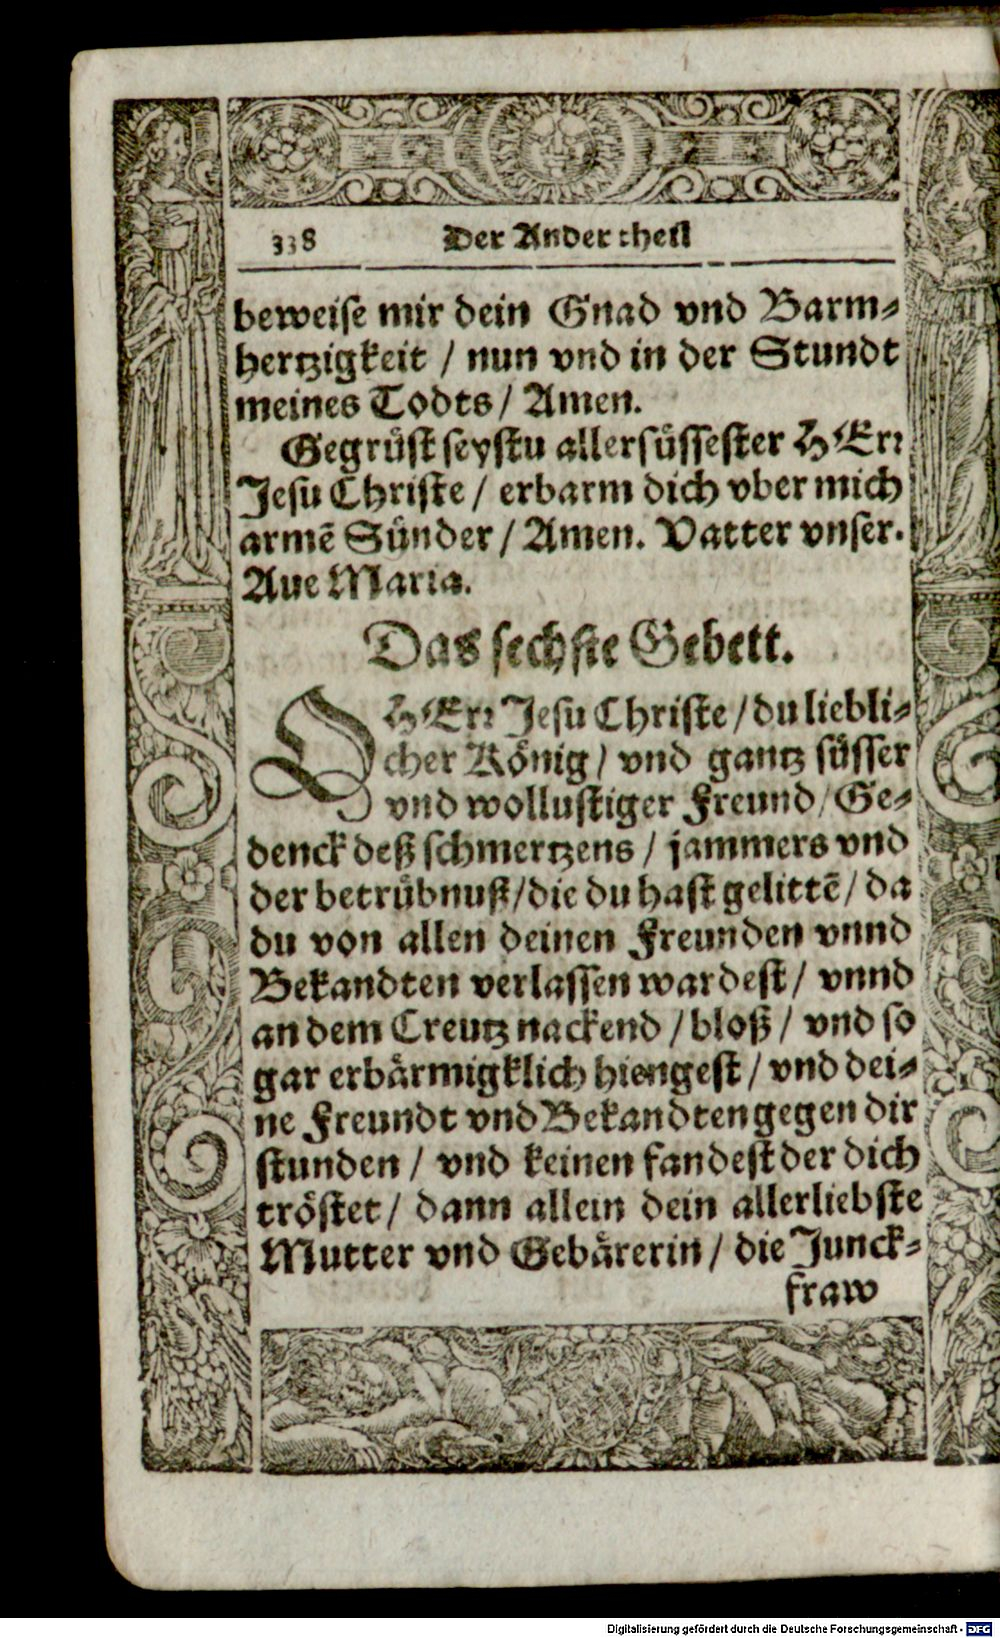 338 Der Ander theil
beweise mir dein Gnad vnd Barm⸗
hertzigkeit / nun vnd in der Stundt
meines Todts / Amen.
Gegrüst seystu allersüssester HErr
Jesu Christe / erbarm dich vber mich
armē Sünder / Amen. Vatter vnser.
Aue Maria.
Das sechste Gebett.
O HErr Jesu Christe / du liebli⸗
cher König / vnd gantz süsser
vnd wollustiger Freund / Ge⸗
denck deß schmertzens / jammers vnd
der betrübnuß / die du hast gelittē / da
du von allen deinen Freunden vnnd
Bekandten verlassen wardest / vnnd
an dem Creutz nackend / bloß / vnd so
gar erbärmigklich hiengest / vnd dei⸗
ne Freundt vnd Bekandten gegen dir
stunden / vnd keinen fandest der dich
tröstet / dann allein dein allerliebste
Mutter vnd Gebärerin / die Junck⸗
fraw
Digitalisierung gefördert durch die Deutsche Forschungsgemeinschaft - DFG